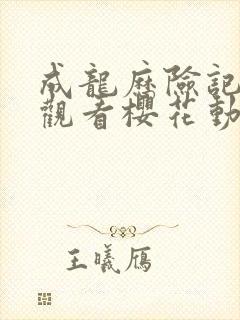 成龍歷險記
觀看櫻花動
王曦鴈